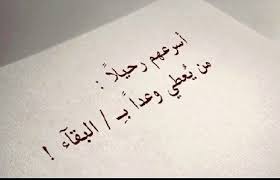 أسرعهم رحيلاً :
من يُعطي وعداً بـِ / البقآء !